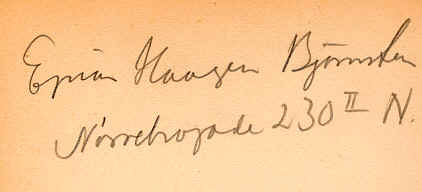 Haagen Bjørnsten
Nørrebrogade 230 II N.